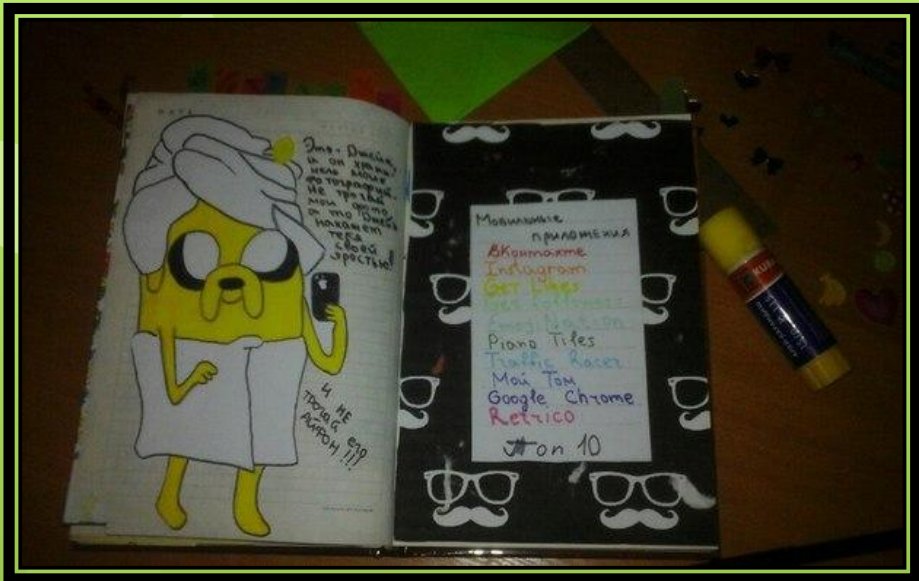 Это - Джейк,
и он храни
тель моих
фотографий.
Не трогай
мои фото,
а то Джейк
накажет
тебя
своей
яростью!
И НЕ
ТРОГАЙ ЕГО
АЙФОН!!!
Мобильные
приложения
ВКонтакте
Instagram
Get Likes
Get Followers
Emoji
Piano Tiles
Traffic Racer
Мой Том
Google Chrome
Retrico
Топ 10